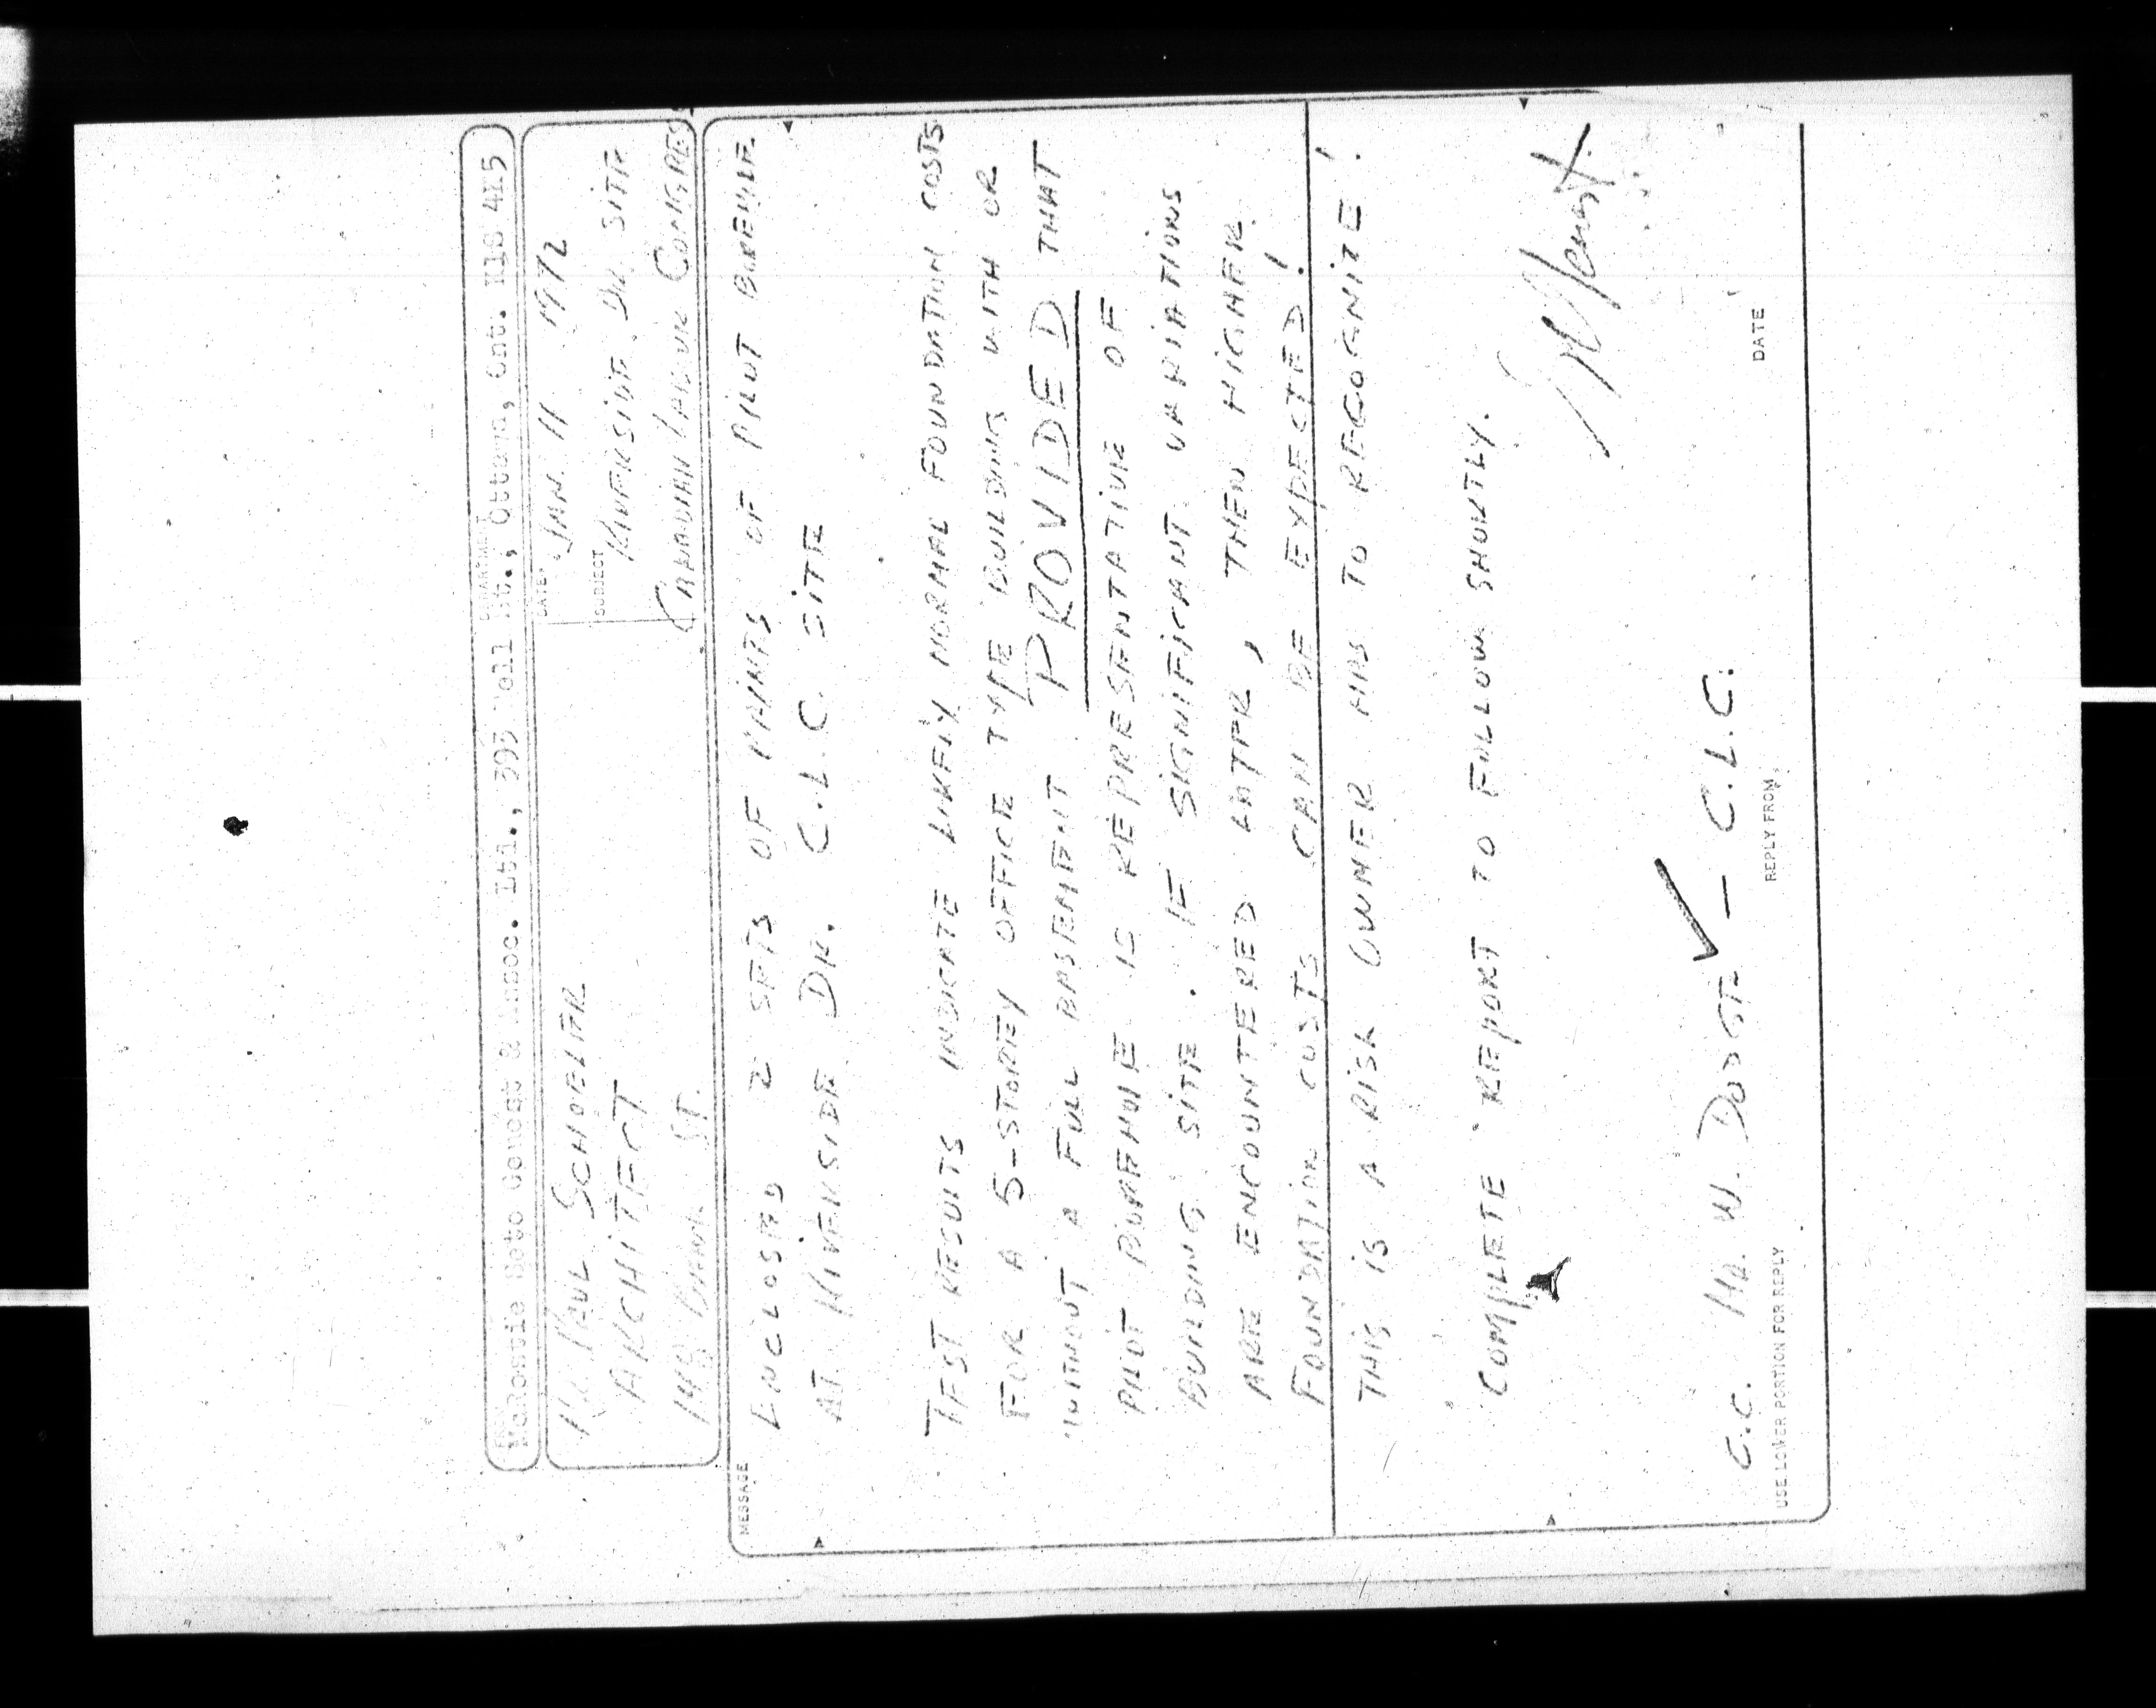 FROM
McRostie Seto Genest & Assoc. Ltd., 393 Bell St., Ottawa, Ont. K1S 4E5
DEPARTMENT
Mr. PAUL SCHOELER
ARCHITECT
148 BANK ST.
DATE JAN. 11 1972
SUBJECT
RIVERSIDE DR SITE
CANADIAN LABOUR CONGRESS
MESSAGE
ENCLOSED 2 SETS OF PRINTS OF PILOT BOREHOLE
AT RIVERSIDE DR. C.L.C. SITE
TEST RESULTS INDICATE LIKELY NORMAL FOUNDATION COSTS
FOR A 5-STOREY OFFICE TYPE BUILDING WITH OR
WITHOUT A FULL BASEMENT PROVIDED THAT
PILOT BOREHOLE IS REPRESENTATIVE OF
BUILDING SITE. IF SIGNIFICANT VARIATIONS
ARE ENCOUNTERED LATER, THEN HIGHER
FOUNDATION COSTS CAN BE EXPECTED!
THIS IS A RISK OWNER HAS TO RECOGNIZE!
COMPLETE REPORT TO FOLLOW SHORTLY.
C.C. Mr. W. DODGE - C.L.C.
USE LOWER PORTION FOR REPLY
REPLY FROM
DATE